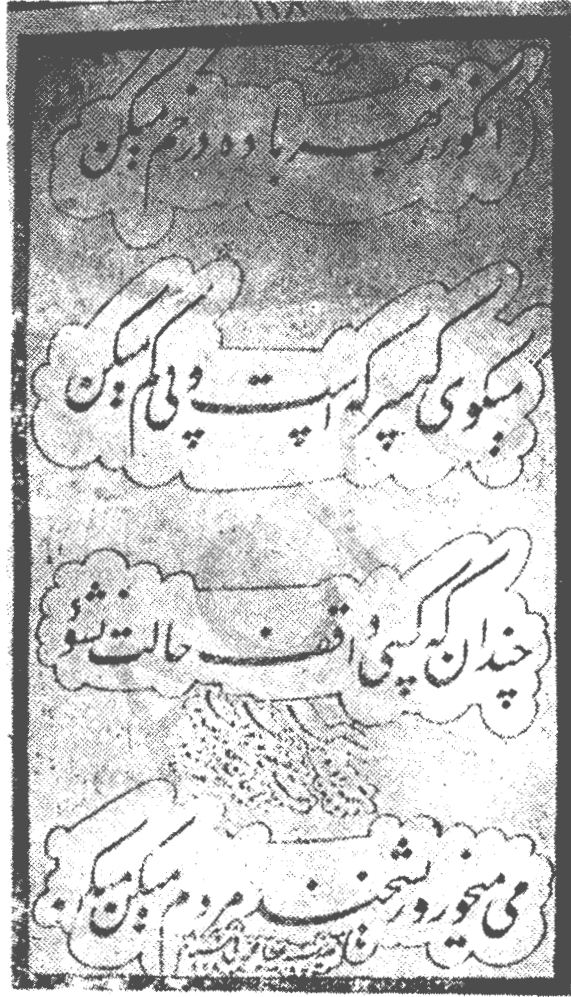 ١١٨
انگور ز بهر باده در خم میکن
میکوی که سرکه است و پی کم میکن
چندان که کسی واقف حالت نشود
می میخور و ریشخند مردم میکن میکن